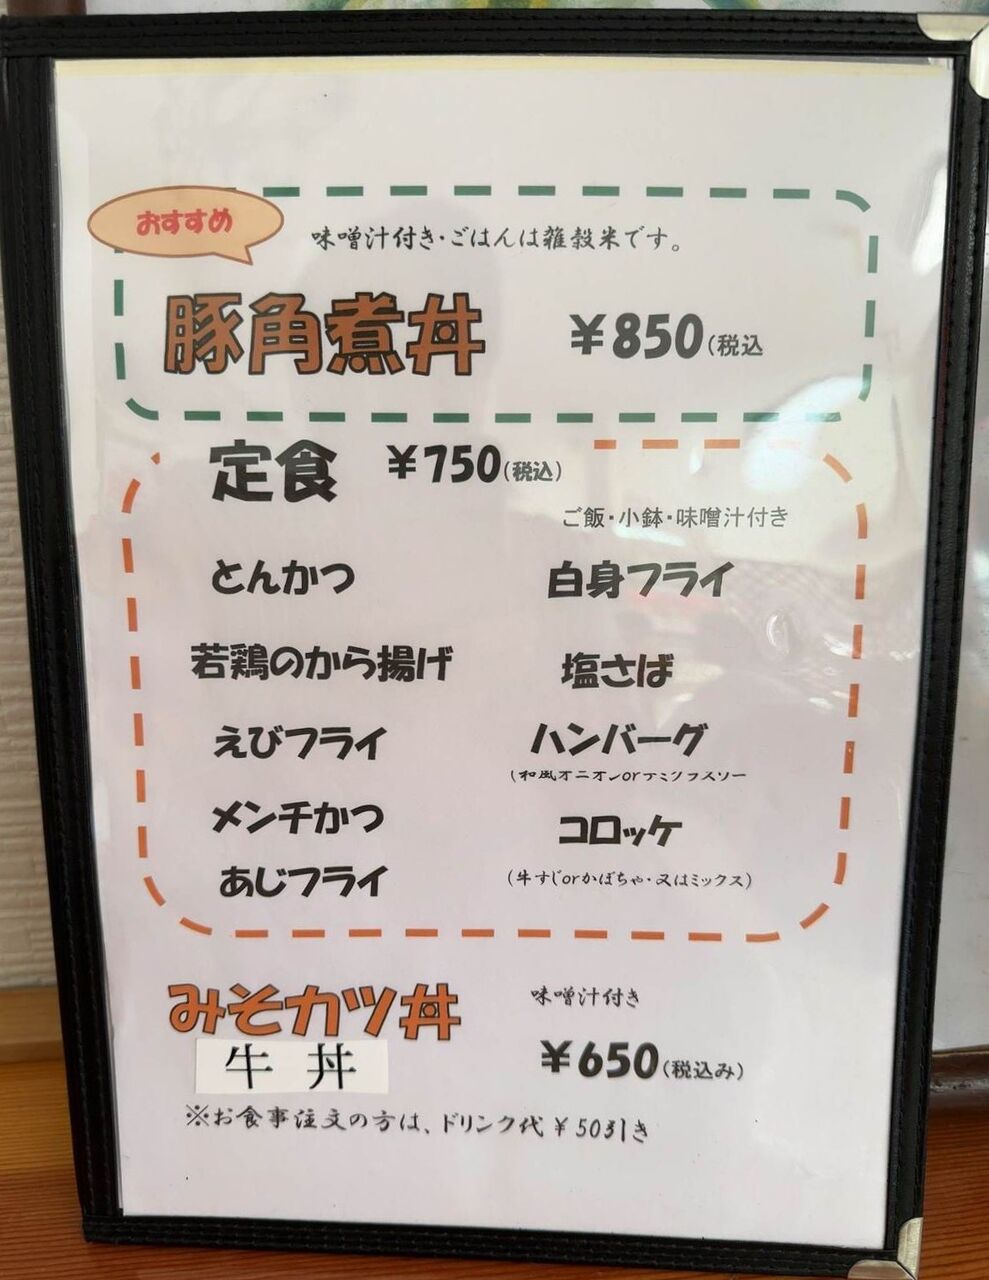 おすすめ
味噌汁付き・ごはんは雑穀米です。
豚角煮丼 ¥850(税込
定食 ¥750(税込)
ご飯・小鉢・味噌汁付き
とんかつ 白身フライ
若鶏のから揚げ 塩さば
えびフライ ハンバーグ
(和風オニオンor
メンチかつ コロッケ
あじフライ (牛すじorかぼちゃ・又はミックス)
みそカツ丼 味噌汁付き
牛丼 ¥650(税込み)
※お食事注文の方は、ドリンク代¥50引き